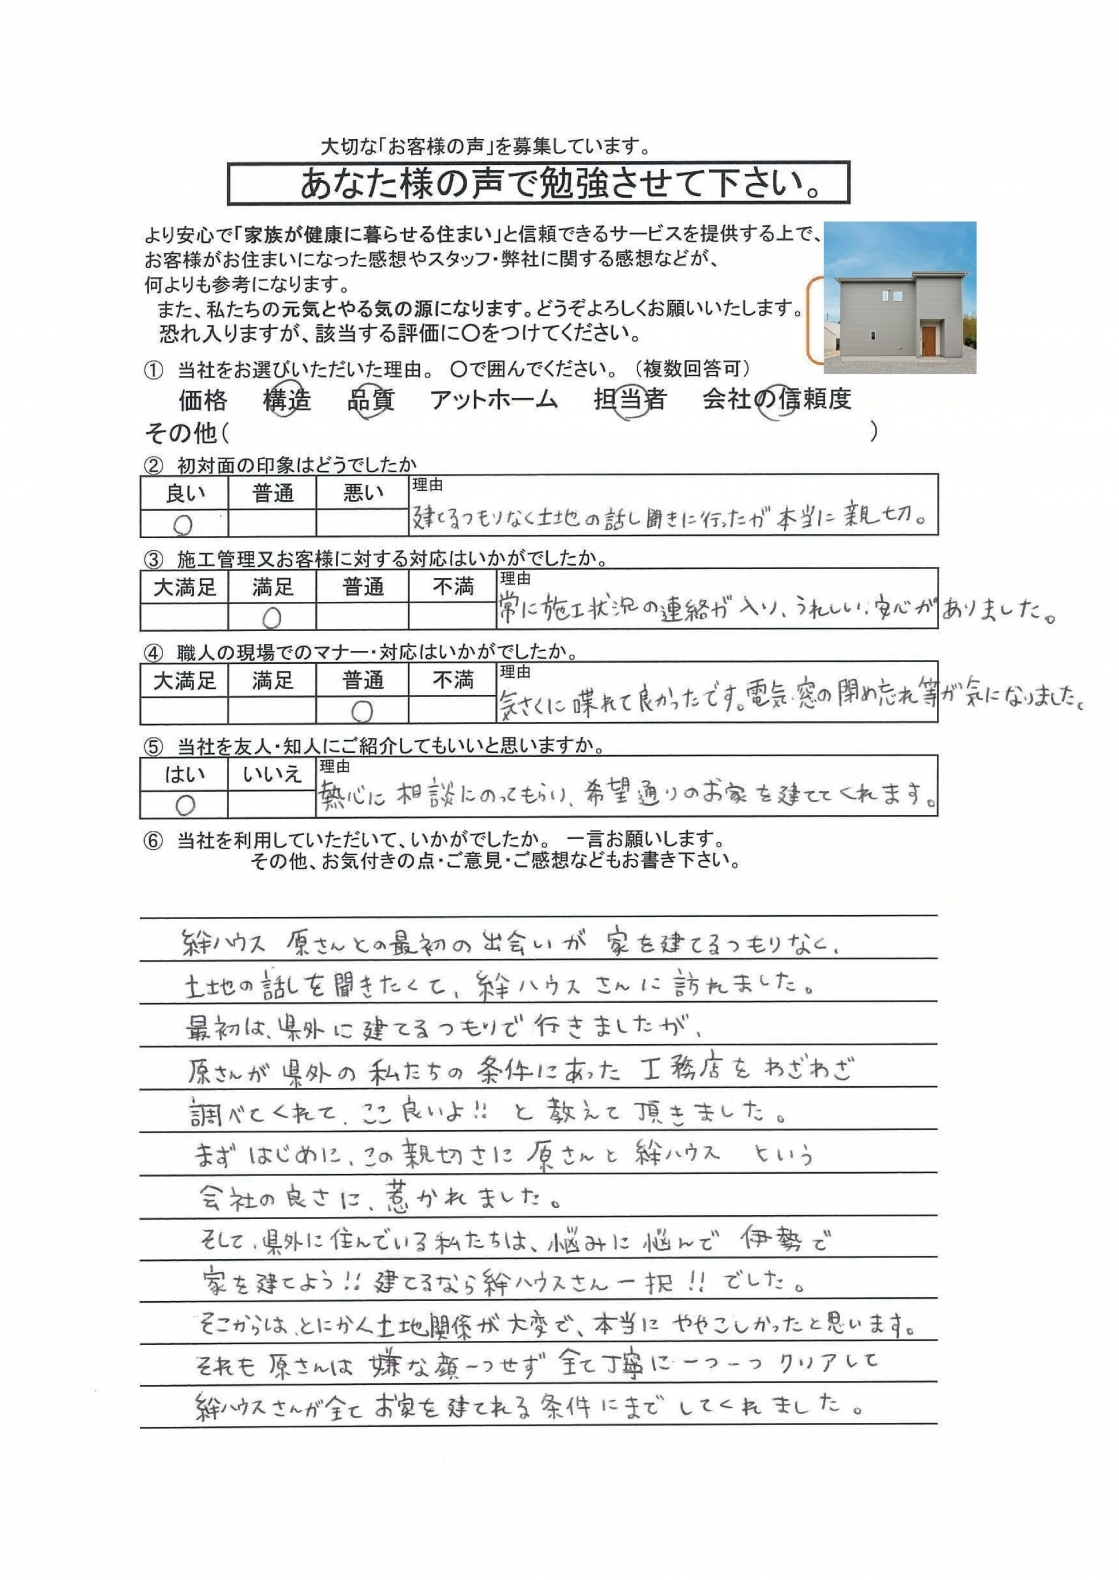 大切な「お客様の声」を募集しています。
あなた様の声で勉強させて下さい。
より安心で「家族が健康に暮らせる住まい」と信頼できるサービスを提供する上で、
お客様がお住まいになった感想やスタッフ・弊社に関する感想などが、
何よりも参考になります。
また、私たちの元気とやる気の源になります。どうぞよろしくお願いいたします。
恐れ入りますが、該当する評価に〇をつけてください。
① 当社をお選びいただいた理由。 〇で囲んでください。（複数回答可）
価格 構造 品質 アットホーム 担当者 会社の信頼度
その他（ ）
② 初対面の印象はどうでしたか
良い 普通 悪い 理由
〇 建てるつもりなく土地の話し聞きに行ったが本当に親切。
③ 施工管理又お客様に対する対応はいかがでしたか。
大満足 満足 普通 不満 理由
〇 常に施工状況の連絡が入り、うれしい、安心がありました。
④ 職人の現場でのマナー・対応はいかがでしたか。
大満足 満足 普通 不満 理由
〇 気さくに喋れて良かったです。電気・窓の閉め忘れ等が気になりました。
⑤ 当社を友人・知人にご紹介してもいいと思いますか。
はい いいえ 理由
〇 熱心に相談にのってもらい、希望通りのお家を建ててくれます。
⑥ 当社を利用していただいて、いかがでしたか。 一言お願いします。
その他、お気付きの点・ご意見・ご感想などもお書き下さい。
絆ハウス 原さんとの最初の出会いが 家を建てるつもりなく、
土地の話しを聞きたくて、絆ハウスさんに訪れました。
最初は、県外に建てるつもりで行きましたが、
原さんが県外の私たちの条件にあった工務店をわざわざ
調べてくれて、ここ良いよ!! と教えて頂きました。
まずはじめに、この親切さに原さんと絆ハウス という
会社の良さに、惹かれました。
そして、県外に住んでいる私たちは、悩みに悩んで 伊勢で
家を建てよう!! 建てるなら絆ハウスさん一択!! でした。
そこからは、とにかく土地関係が大変で、本当にややこしかったと思います。
それも原さんは嫌な顔一つせず全て丁寧に一つ一つクリアして
絆ハウスさんが全てお家を建てれる条件にまでしてくれました。